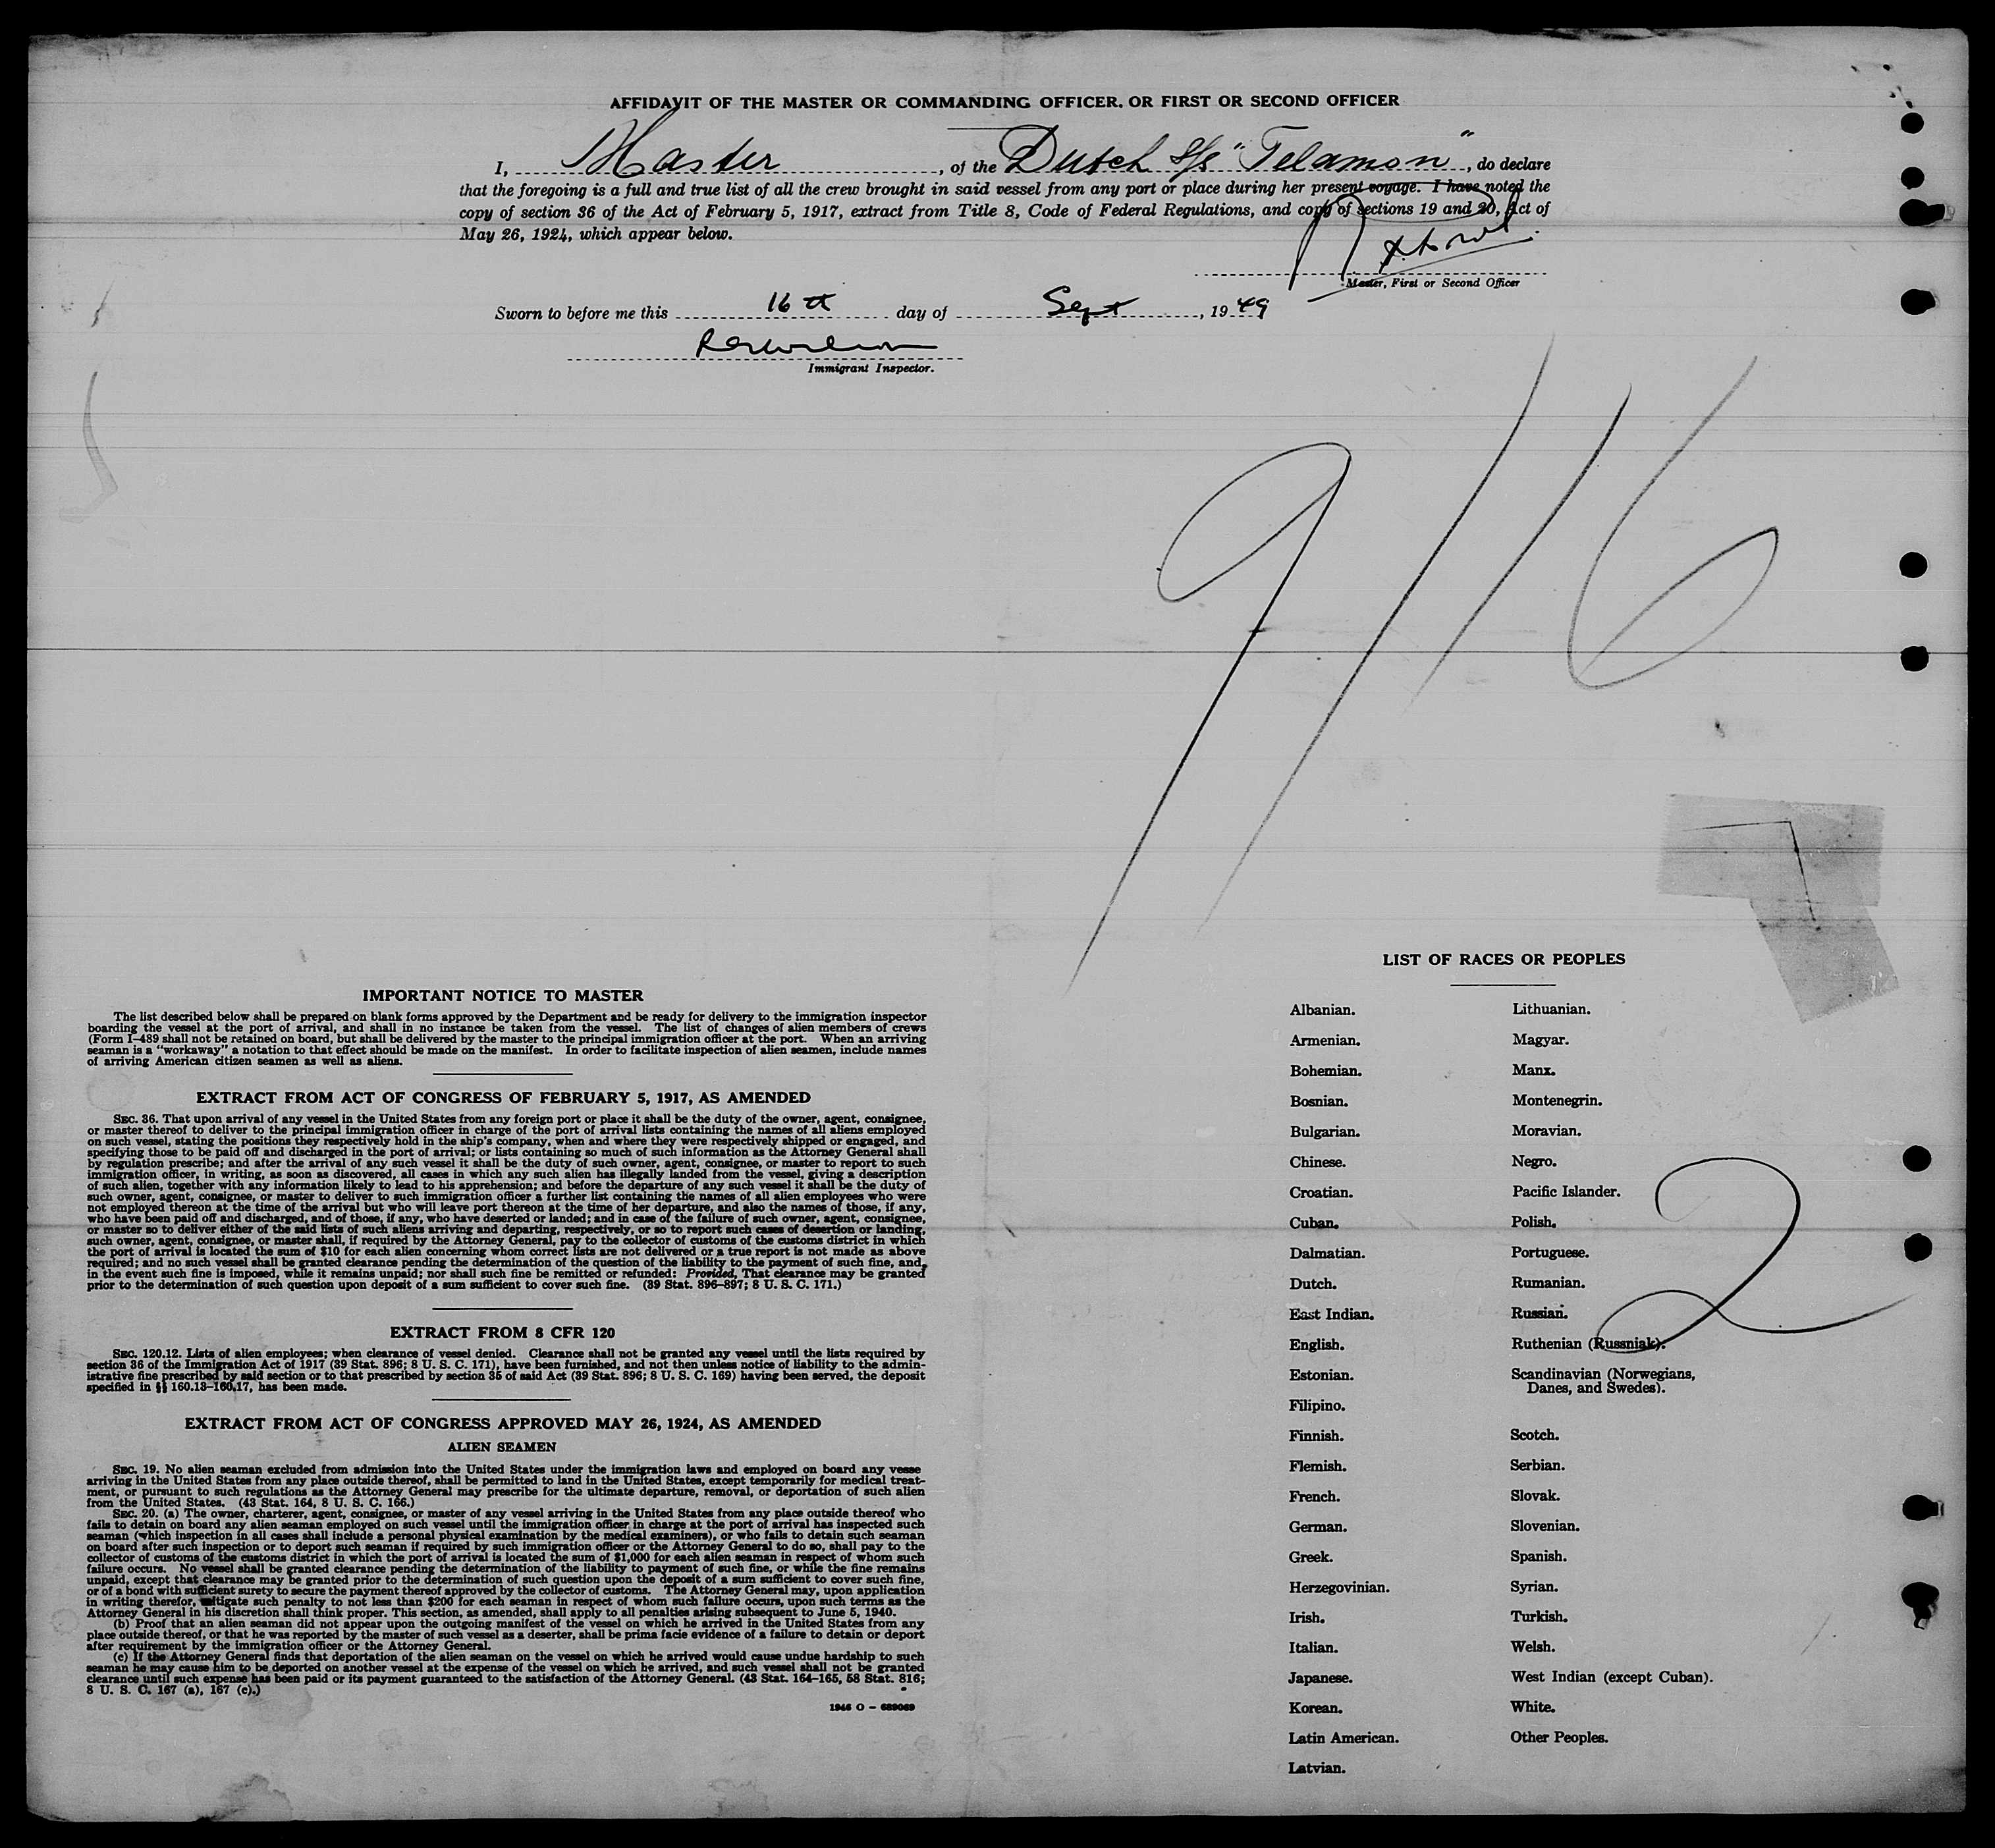 AFFIDAVIT OF THE MASTER OR COMMANDING OFFICER, OR FIRST OR SECOND OFFICER
I, Master, of the Dutch S/s "Telamon", do declare
that the foregoing is a full and true list of all the crew brought in said vessel from any port or place during her present voyage. I have noted the
copy of section 36 of the Act of February 5, 1917, extract from Title 8, Code of Federal Regulations, and copy of sections 19 and 20, Act of
May 26, 1924, which appear below.
Master, First or Second Officer
Sworn to before me this 16th day of Sept, 1949
Immigrant Inspector.
9/16
IMPORTANT NOTICE TO MASTER
The list described below shall be prepared on blank forms approved by the Department and be ready for delivery to the immigration inspector
boarding the vessel at the port of arrival, and shall in no instance be taken from the vessel. The list of changes of alien members of crews
(Form I-489 shall not be retained on board, but shall be delivered by the master to the principal immigration officer at the port. When an arriving
seaman is a "workaway" a notation to that effect should be made on the manifest. In order to facilitate inspection of alien seamen, include names
of arriving American citizen seamen as well as aliens.
EXTRACT FROM ACT OF CONGRESS OF FEBRUARY 5, 1917, AS AMENDED
SEC. 36. That upon arrival of any vessel in the United States from any foreign port or place it shall be the duty of the owner, agent, consignee,
or master thereof to deliver to the principal immigration officer in charge of the port of arrival lists containing the names of all aliens employed
on such vessel, stating the positions they respectively hold in the ship's company, when and where they were respectively shipped or engaged, and
specifying those to be paid off and discharged in the port of arrival; or lists containing so much of such information as the Attorney General shall
by regulation prescribe; and after the arrival of any such vessel it shall be the duty of such owner, agent, consignee, or master to report to such
immigration officer, in writing, as soon as discovered, all cases in which any such alien has illegally landed from the vessel, giving a description
of such alien, together with any information likely to lead to his apprehension; and before the departure of any such vessel it shall be the duty of
such owner, agent, consignee, or master to deliver to such immigration officer a further list containing the names of all alien employees who were
not employed thereon at the time of the arrival but who will leave port thereon at the time of her departure, and also the names of those, if any,
who have been paid off and discharged, and of those, if any, who have deserted or landed; and in case of the failure of such owner, agent, consignee,
or master so to deliver either of the said lists of such aliens arriving and departing, respectively, or so to report such cases of desertion or landing,
such owner, agent, consignee, or master shall, if required by the Attorney General, pay to the collector of customs of the customs district in which
the port of arrival is located the sum of $10 for each alien concerning whom correct lists are not delivered or a true report is not made as above
required; and no such vessel shall be granted clearance pending the determination of the question of the liability to the payment of such fine, and,
in the event such fine is imposed, while it remains unpaid; nor shall such fine be remitted or refunded: Provided, That clearance may be granted
prior to the determination of such question upon deposit of a sum sufficient to cover such fine. (39 Stat. 896-897; 8 U. S. C. 171.)
EXTRACT FROM 8 CFR 120
SEC. 120.12. Lists of alien employees; when clearance of vessel denied. Clearance shall not be granted any vessel until the lists required by
section 36 of the Immigration Act of 1917 (39 Stat. 896; 8 U. S. C. 171), have been furnished, and not then unless notice of liability to the admin-
istrative fine prescribed by said section or to that prescribed by section 35 of said Act (39 Stat. 896; 8 U. S. C. 169) having been served, the deposit
specified in §§ 160.13-160.17, has been made.
EXTRACT FROM ACT OF CONGRESS APPROVED MAY 26, 1924, AS AMENDED
ALIEN SEAMEN
SEC. 19. No alien seaman excluded from admission into the United States under the immigration laws and employed on board any vesse
arriving in the United States from any place outside thereof, shall be permitted to land in the United States, except temporarily for medical treat-
ment, or pursuant to such regulations as the Attorney General may prescribe for the ultimate departure, removal, or deportation of such alien
from the United States. (43 Stat. 164, 8 U. S. C. 166.)
SEC. 20. (a) The owner, charterer, agent, consignee, or master of any vessel arriving in the United States from any place outside thereof who
fails to detain on board any alien seaman employed on such vessel until the immigration officer in charge at the port of arrival has inspected such
seaman (which inspection in all cases shall include a personal physical examination by the medical examiners), or who fails to detain such seaman
on board after such inspection or to deport such seaman if required by such immigration officer or the Attorney General to do so, shall pay to the
collector of customs of the customs district in which the port of arrival is located the sum of $1,000 for each alien seaman in respect of whom such
failure occurs. No vessel shall be granted clearance pending the determination of the liability to payment of such fine, or while the fine remains
unpaid, except that clearance may be granted prior to the determination of such question upon the deposit of a sum sufficient to cover such fine,
or of a bond with sufficient surety to secure the payment thereof approved by the collector of customs. The Attorney General may, upon application
in writing therefor, mitigate such penalty to not less than $200 for each seaman in respect of whom such failure occurs, upon such terms as the
Attorney General in his discretion shall think proper. This section, as amended, shall apply to all penalties arising subsequent to June 5, 1940.
(b) Proof that an alien seaman did not appear upon the outgoing manifest of the vessel on which he arrived in the United States from any
place outside thereof, or that he was reported by the master of such vessel as a deserter, shall be prima facie evidence of a failure to detain or deport
after requirement by the immigration officer or the Attorney General.
(c) If the Attorney General finds that deportation of the alien seaman on the vessel on which he arrived would cause undue hardship to such
seaman he may cause him to be deported on another vessel at the expense of the vessel on which he arrived, and such vessel shall not be granted
clearance until such expense has been paid or its payment guaranteed to the satisfaction of the Attorney General. (43 Stat. 164-165, 58 Stat. 816;
8 U. S. C. 167 (a), 167 (c).)
1946 O - 689069
LIST OF RACES OR PEOPLES
Albanian.
Armenian.
Bohemian.
Bosnian.
Bulgarian.
Chinese.
Croatian.
Cuban.
Dalmatian.
Dutch.
East Indian.
English.
Estonian.
Filipino.
Finnish.
Flemish.
French.
German.
Greek.
Herzegovinian.
Irish.
Italian.
Japanese.
Korean.
Latin American.
Latvian.
Lithuanian.
Magyar.
Manx.
Montenegrin.
Moravian.
Negro.
Pacific Islander.
Polish.
Portuguese.
Rumanian.
Russian.
Ruthenian (Russniak).
Scandinavian (Norwegians,
Danes, and Swedes).
Scotch.
Serbian.
Slovak.
Slovenian.
Spanish.
Syrian.
Turkish.
Welsh.
West Indian (except Cuban).
White.
Other Peoples.
2